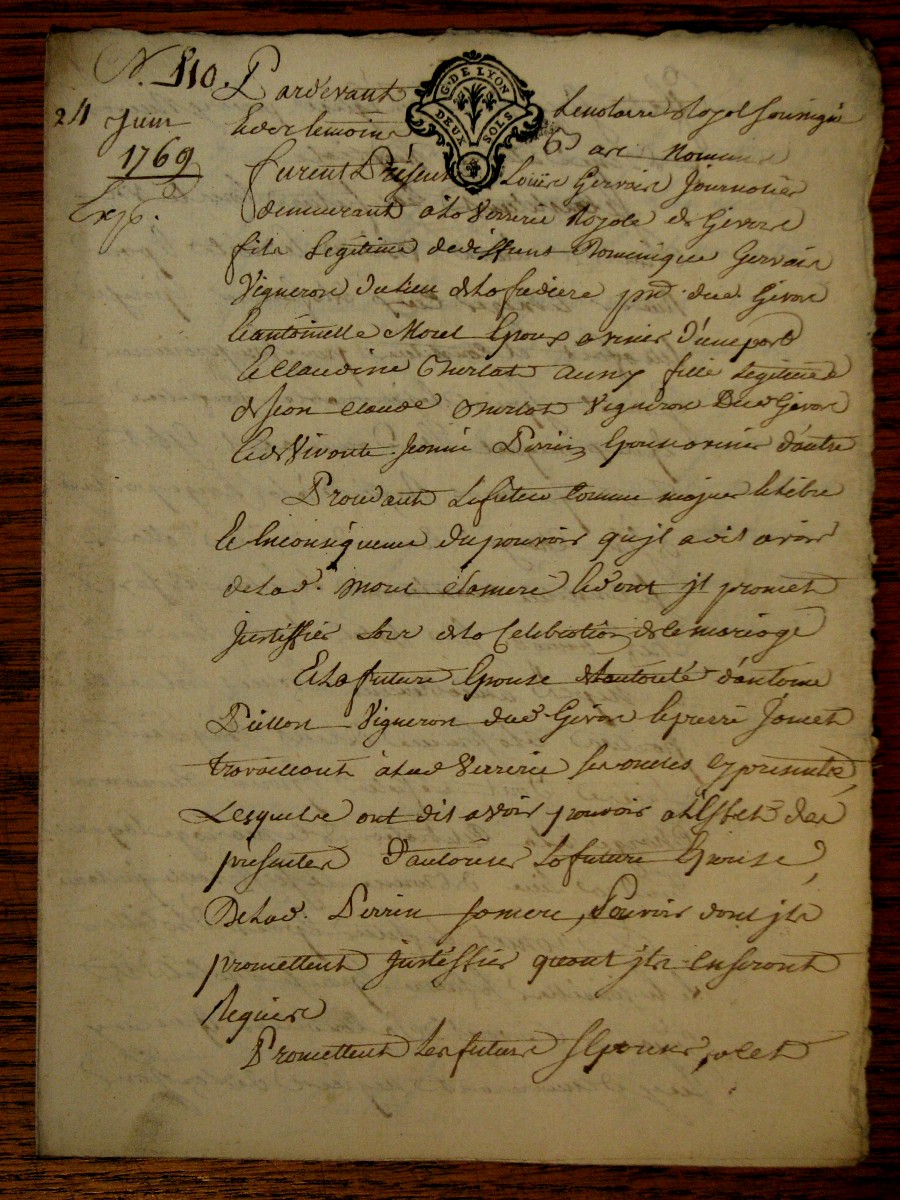 N. 110
24
Juin
1769
Exp.
G. DE LYON
DEUX SOLS
Pardevant Le notaire Royal soussigné
Et des temoins
furent Présents Louis Gervais Journalier
demeurant a la Verrerie Royale de Givors
fils Legitime de deffunt Dominique Gervais
Vigneron du lieu de la fredière psse. dud. Givors
Et antoinette Morel Epoux a vivier d'une part
Et Claudine fille Legitime
de Jean Claude Vigneron Dud Givors
Et de Vivante Jeanne Perrin d'autre
Procedant Le futur Comme majeur Et libre
Et En consequence du pouvoir qu'jl a dit avoir
de lad. Morel sa mere Et dont jl promet
Justiffier Lors de la Celebration de le mariage
Et La future Epouse de L'autorité d'antoine
Vigneron dud Givors Et pierre Jomet
travaillant à lad Verrerie ses oncles cy presents
Lesquels ont dit avoir pouvoir a L'effet des
presentes D'autoriser La future Epouse,
De Lad. Perrin sa mere, Pouvoir dont jls
promettent justiffier quant jls En seront
Requis
Promettent Les futurs Epoux